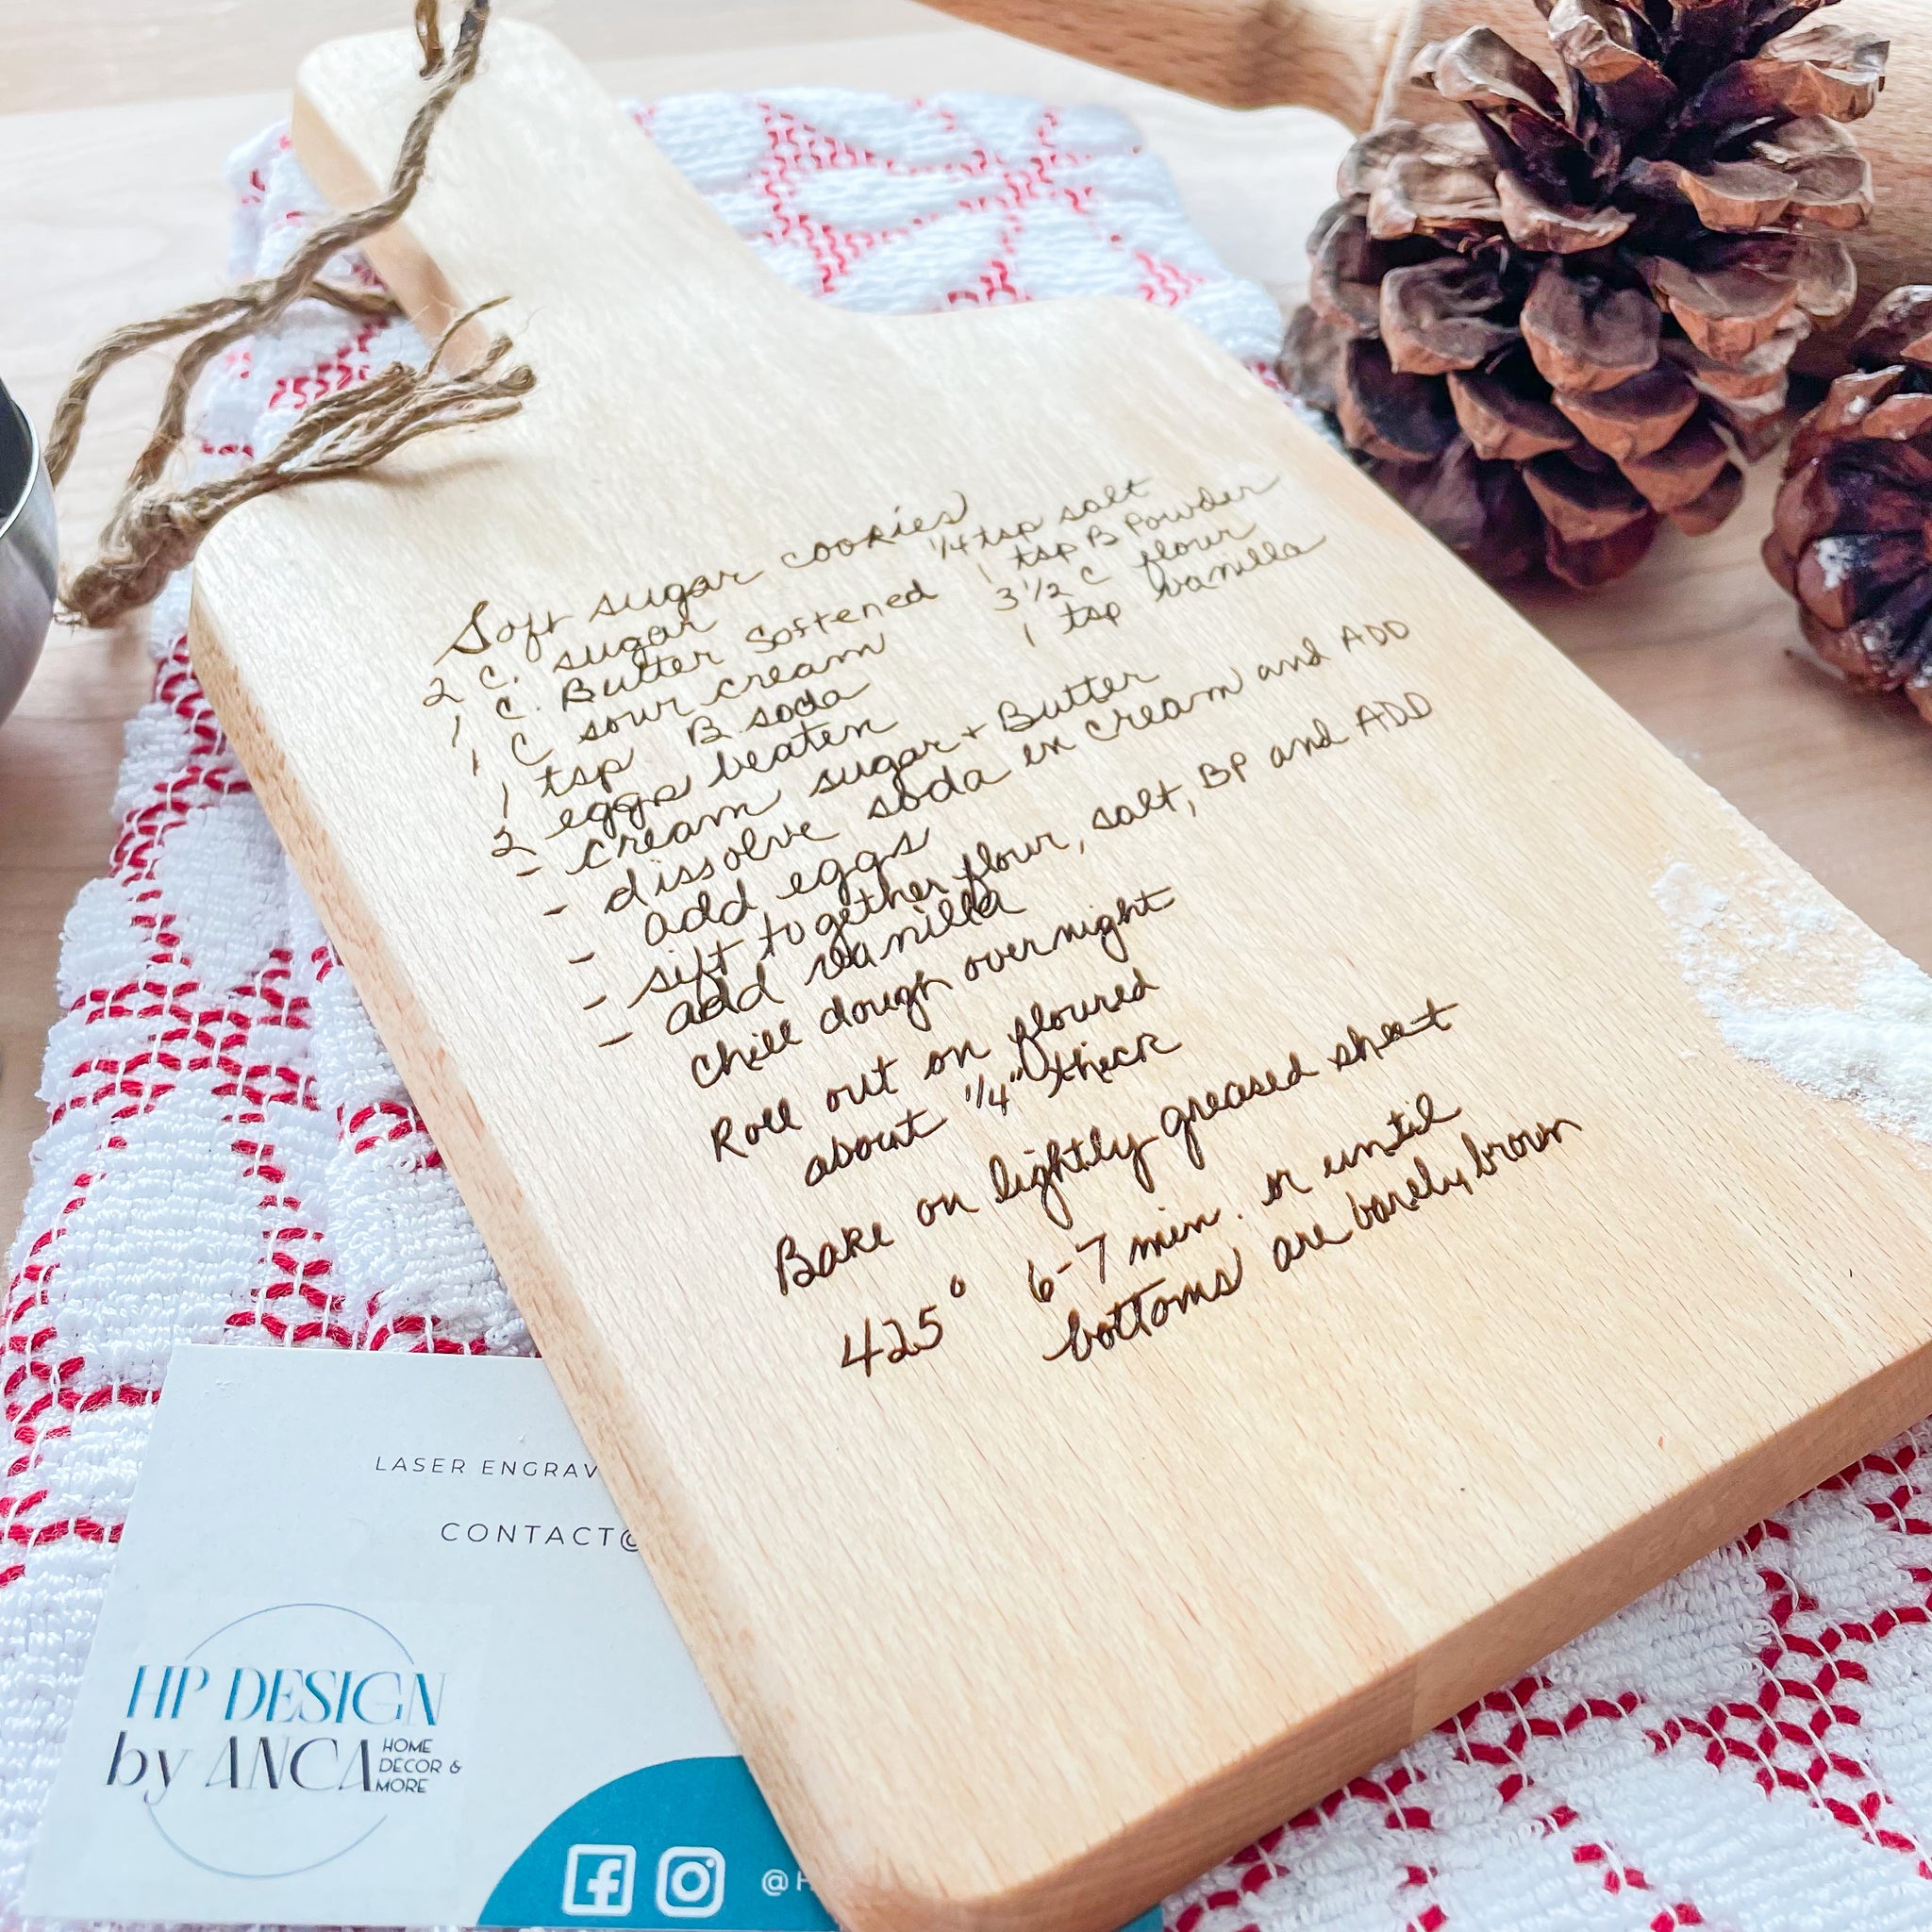 Soft sugar cookies
2 C. sugar
1 C. Butter Softened
1 C sour cream
1 tsp B soda
2 eggs beaten
1/4 tsp salt
1 tsp B Powder
3 1/2 C flour
1 tsp vanilla
- cream sugar + Butter
- dissolve soda in cream and ADD
- add eggs
- sift together flour, salt, BP and ADD
- add vanilla
chill dough overnight
Roll out on floured
about 1/4" thick
Bake on lightly greased sheet
425° 6-7 min. or until
bottoms are barely brown
LASER ENGRAV
CONTACT@
HP DESIGN
by ANCA
HOME
DECOR &
MORE
@H